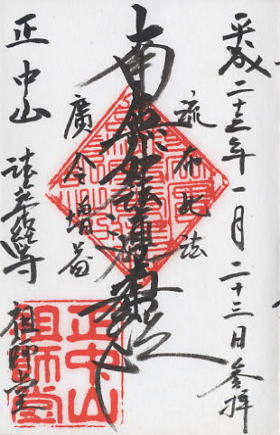 平成二十三年一月二十三日参拝
流布此法
南無妙法蓮華経
廣令増益
正中山 法華経寺 祖師堂
正中山
祖師堂